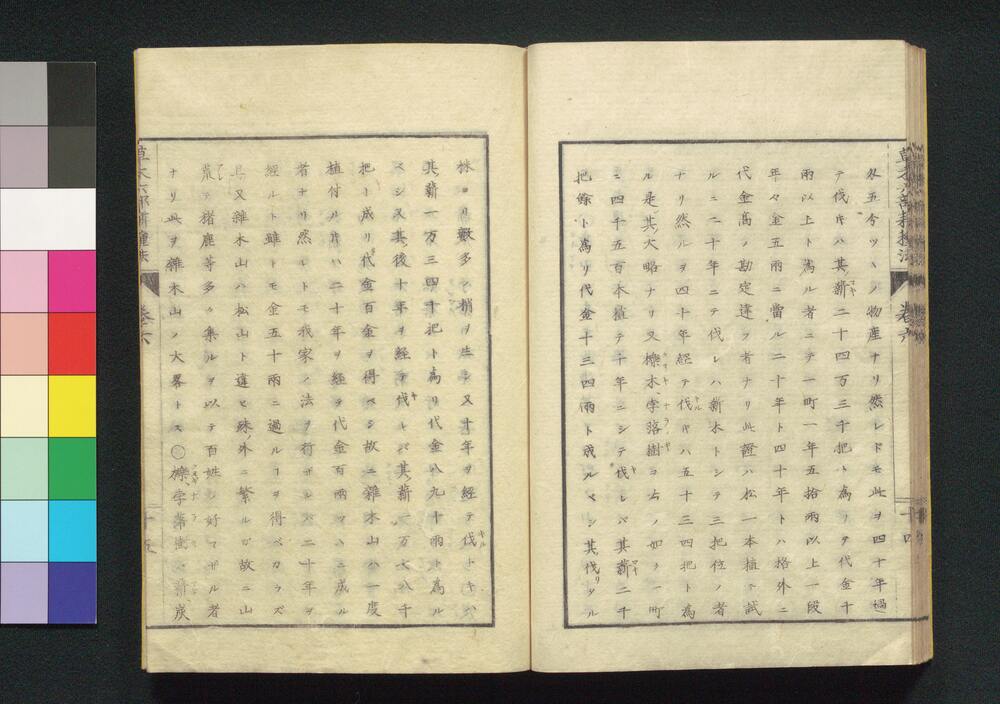 久五分ツヽノ物産ナリ然レドモ此ヲ四十年過
テ伐キハ其薪二十四万三千把ト為リタ代金千
両以上ト為ル者ニテ一町一年五拾両以上一段
年々金五両ニ當ル二十年ト四十年トハ格外ニ
代金高ノ勘定違フ者ナリ此證ハ松一本植テ試
ルニ二十年ニテ伐レハ薪木トシテ三把位ノ者
ナリ然ルヲ四十年経テ伐キハ五十三四把ト為
ル是其大略ナリ又櫟木字落樹ヨ右ノ如ク一町
ニ四千五百本植テ十年ニシテ伐レバ其薪二千
把餘ト為リ代金十三四両ト成ルベシ其伐リタル
株ヨリ數多ノ梢ヲ生ジ又十年ヲ経テ伐トキハ
其薪一万三四十把ト為リ代金八九十両ト為ル
ベシ又其後十年ヲ経テ伐レバ其薪一万六八千
把ト成リ代金百金ヲ得ベシ故ニ雑木山ハ一度
植付ル片ハ二十年ヲ経テ代金百両マハニ成ル
者ナリ然レトモ我家ノ法ヲ行ザレバ二十年ヲ
経ルト雖トモ金五十両ニ過ルヿヲ得ベカラズ
且又雑木山ハ松山ト違ヒ殊ノ外ニ繁ルガ故ニ山
荒テ猪鹿等多ク集ルヲ以テ百姓ノ好マザル者
ナリ此ヲ雑木山ノ大畧トス○櫟字落樹ハ薪炭
草木六部耕種法
巻六
十四
巻六
十五